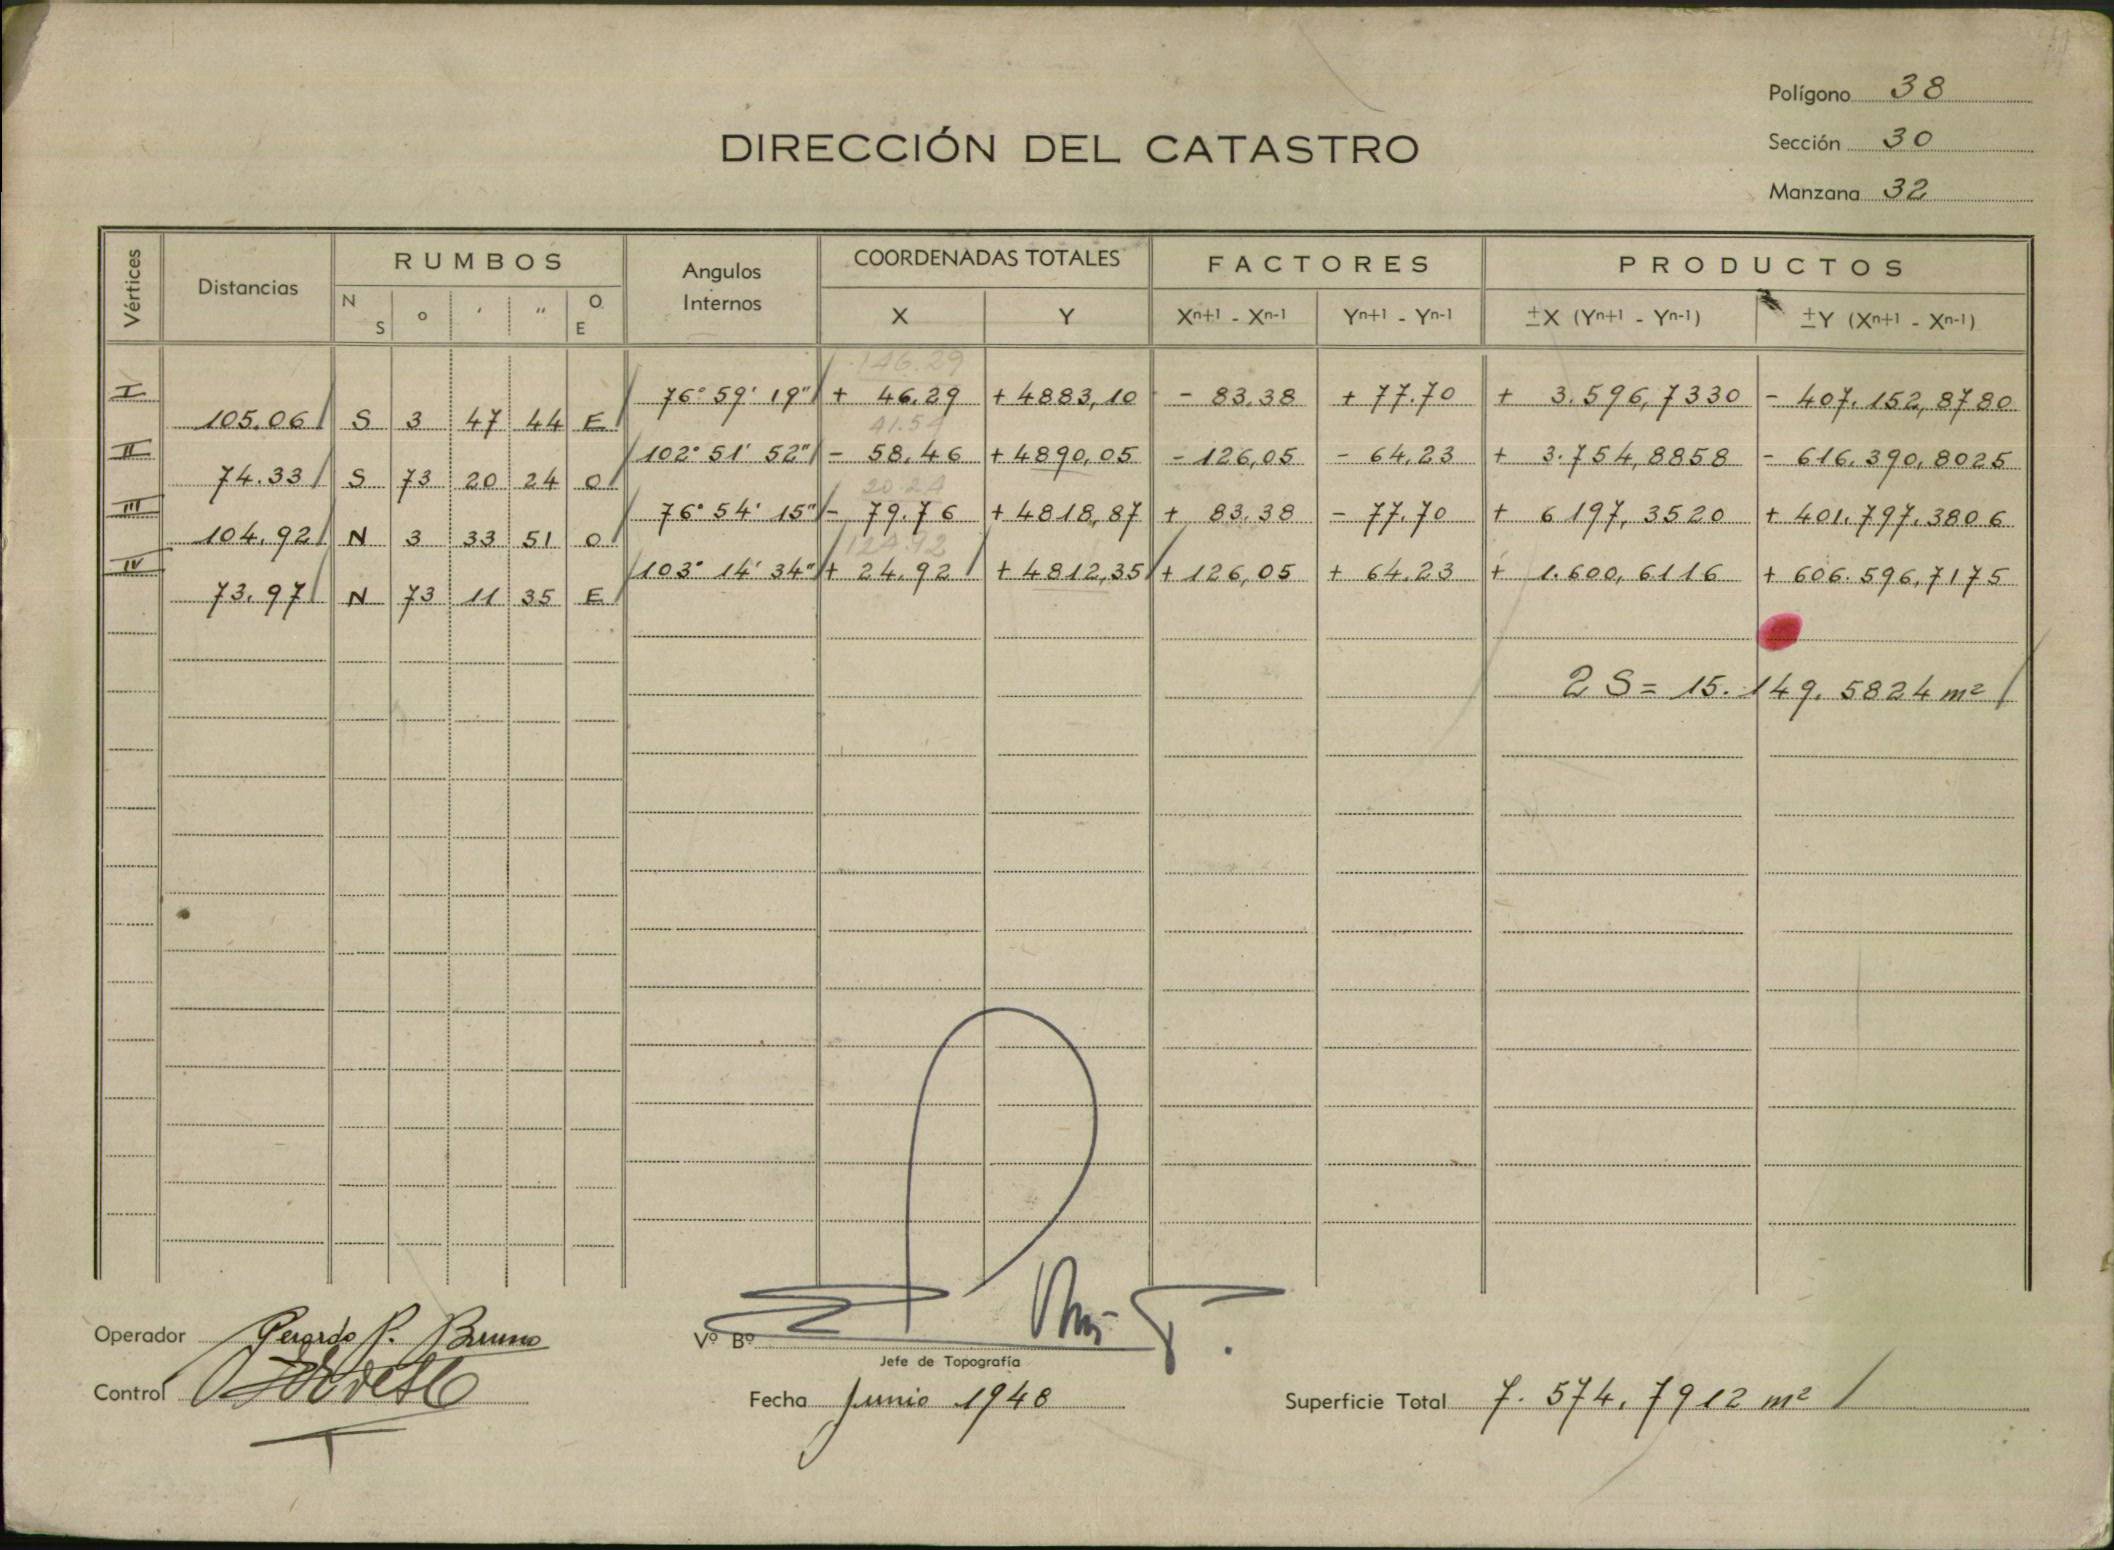 Polígono 38
DIRECCIÓN DEL CATASTRO
Sección 30
Manzana 32
Vértices Distancias RUMBOS Angulos Internos COORDENADAS TOTALES FACTORES PRODUCTOS
N S ° ' " O E X Y Xn+1 - Xn-1 Yn+1 - Yn-1 ±X (Yn+1 - Yn-1) ±Y (Xn+1 - Xn-1)
146.29
I 76° 59' 19" + 46.29 + 4883,10 - 83.38 + 77.70 + 3.596,7330 - 407.152,8780
105.06 S 3 47 44 E 41.54
II 102° 51' 52" - 58.46 + 4890,05 - 126,05 - 64,23 + 3.754,8858 - 616.390,8025
74.33 S 73 20 24 O 20.24
III 76° 54' 15" - 79.76 + 4818,87 + 83,38 - 77.70 + 6197,3520 + 401.797.3806
104,92 N 3 33 51 O 124.92
IV 103° 14' 34" + 24.92 + 4812,35 + 126,05 + 64.23 + 1.600,6116 + 606.596,7175
73.97 N 73 11 35 E
2 S = 15.149.5824 m²
Operador Gerardo P. Bruno
Vº Bº
Jefe de Topografía
Control
Fecha Junio 1948
Superficie Total 7.574.7912 m²